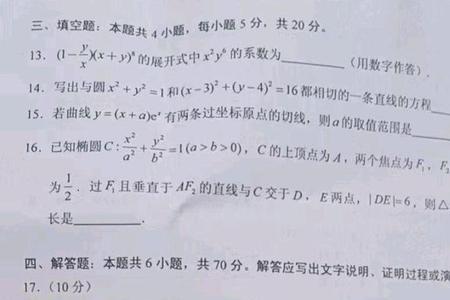 三、填空题：本题共 4 小题，每小题 5 分，共 20 分。
13. (1-y/x)(x+y)⁸的展开式中x²y⁶的系数为________（用数字作答）.
14. 写出与圆x²+y²=1和(x-3)²+(y-4)²=16都相切的一条直线的方程
15. 若曲线y=(x+a)eˣ有两条过坐标原点的切线，则a的取值范围是
16. 已知椭圆C:x²/a²+y²/b²=1(a>b>0)，C的上顶点为A，两个焦点为F₁，F₂
为1/2．过F₁且垂直于AF₂的直线与C交于D，E两点，|DE|=6，则△
长是________.
四、解答题：本题共 6 小题，共 70 分。解答应写出文字说明、证明过程或演
17.（10 分）